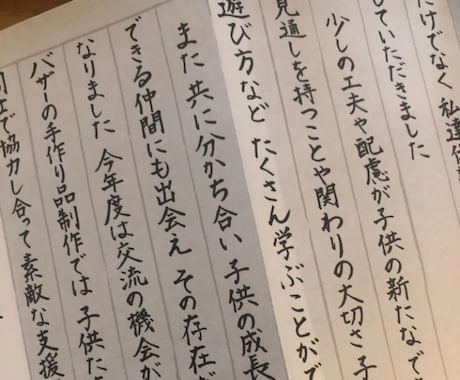 だけでなく 私達
していただきました
少しの工夫や配慮が子供の新たなで
見通しを持つことや関わりの大切さ 子
遊び方など たくさん学ぶことがで
また 共に分かち合い 子供の成長
できる仲間にも出会え その存在が
なりました 今年度は交流の機会が
バザーの手作り品制作では 子供た
同士で協力し合って素敵な支援